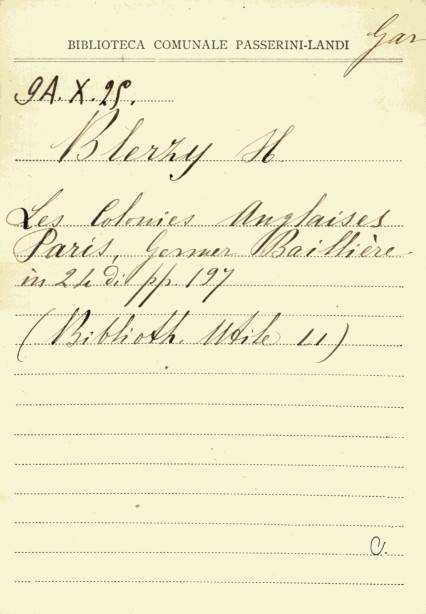 Gar
BIBLIOTECA COMUNALE PASSERINI-LANDI
9A.X.25.
Blerzy H
Les Colonies Anglaises
Paris, Germer Baillière
in 24 di pp. 197
(Biblioth. Utile LI)
C.